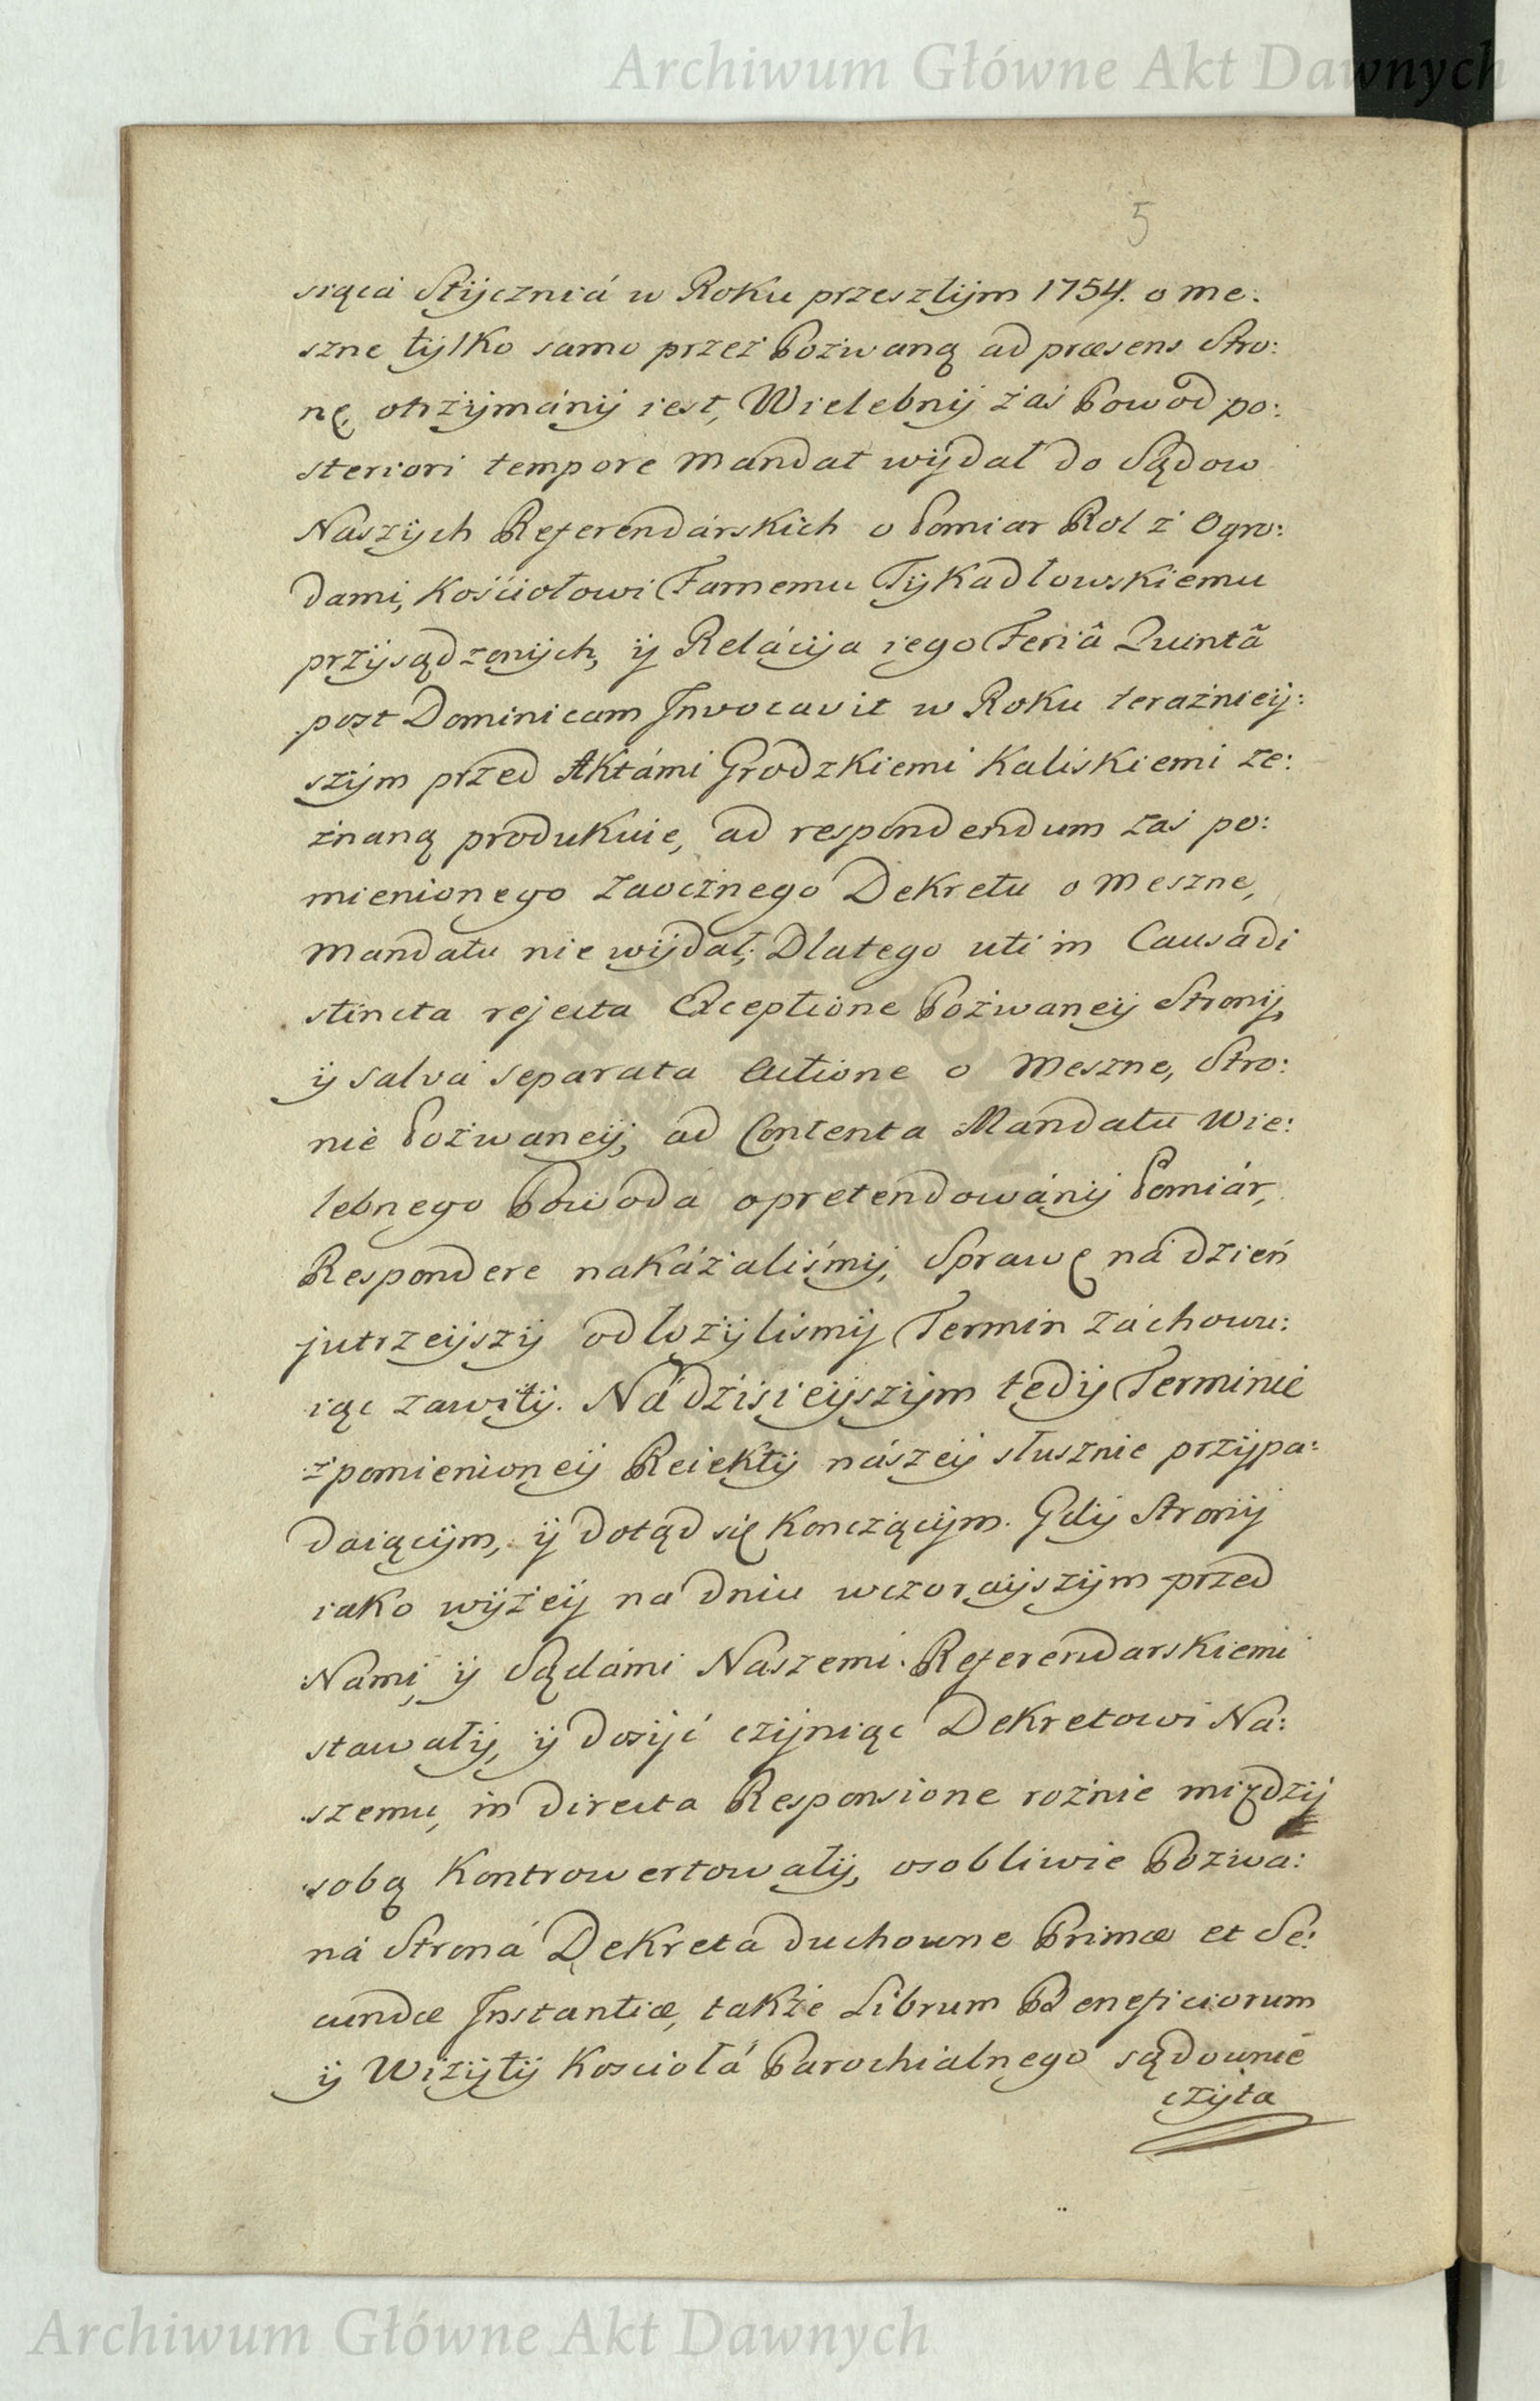 Archiwum Główne Akt Dawnych
5
siąca Styczniá w Roku przeszłym 1754. o me:
szne tylko samo przez Pozwaną ad præsens Stro:
nę, otrzymány iest, Wielebny zaś Powod po:
steriori tempore Mandat wydał do Sądow
Naszych Referendárskich o Pomiar Rol z Ogro:
dami, Kościołowi Farnemu Tykadłowskiemu
przysądzonych, y Relácya iego Feriâ Quintâ
post Dominicam Invocavit w Roku teraźniey:
szym przed Aktámi Grodzkiemi Kaliskiemi ze:
znaną produkuie, ad respondendum zaś po:
mienionego Zaocznego Dekretu o Meszne,
Mandatu nie wydał; Dlatego uti in Causa di
stincta rejecta Exceptione Pozwaney Strony,
y salva separata Actione o Meszne, Stro:
nie Pozwaney, ad Contenta Mandatu Wie:
lebnego Powoda o pretendowány Pomiár,
Respondere nakázaliśmy, Sprawę ná dzień
jutrzeyszy odłożyliśmy Termin záchowu:
iąc zawity. Ná dzisieyszym tedy Terminie
z pomienioney Reiekty nászey słusznie przypa:
daiącym, y dotąd się kończącym. Gdy Strony
iako wyżey na dniu wczorayszym przed
Námi, y Sądámi Naszemi Referendarskiemi
stawały, y dosyć czyniąc Dekretowi Na:
szemu, in directa Responsione rożnie między
sobą Kontrowertowały, osobliwie Pozwa:
ná Stroná Dekreta duchowne Primæ et Se:
cundæ Instantiæ, także Librum Beneficiorum
y Wizyty Kościołá Parochialnego sądownie
czyta
Archiwum Główne Akt Dawnych